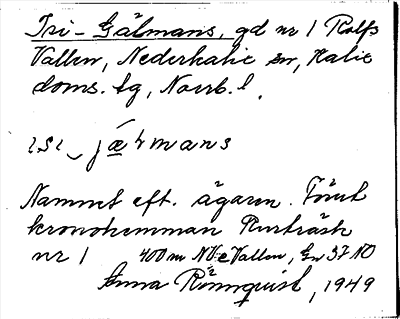 Tri-Gälmans, gd nr 1 Rolfs
Vallen, Nederkalix sn, Kalix
doms. tg, Norrb. l.
jæ̀ʽrmans
Namnet eft. ägaren. Förut
kronohemman Rusträsk
nr 1 400 m NV e Vallen, En 37 NO
Anna Rönnquist, 1949